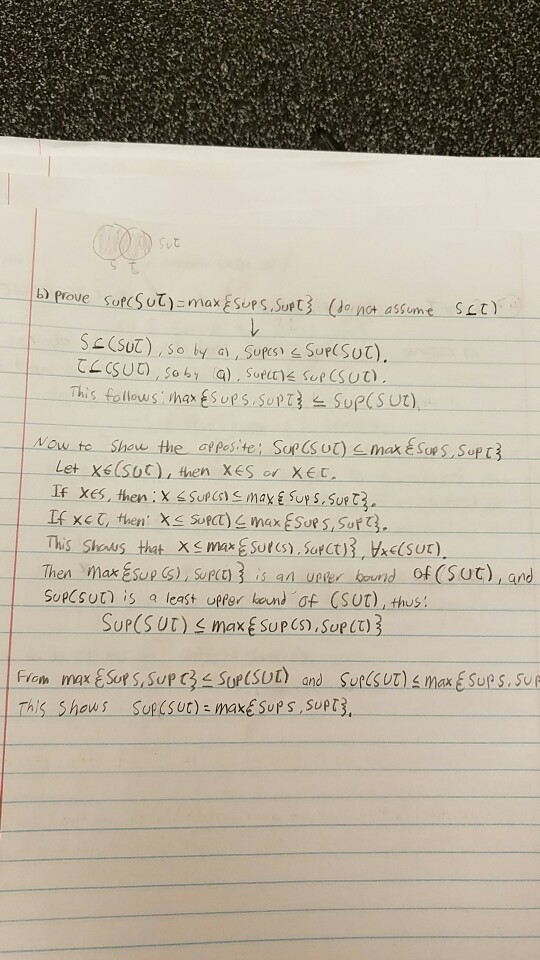 S∪T
S T
b) prove sup(S∪T)=max{sup S, sup T} (do not assume S⊆T)
↓
S⊆(S∪T), so by a), sup(s) ≤ sup(S∪T).
T⊆(S∪T), so by (a), sup(T) ≤ sup(S∪T).
This follows: max{sup S, sup T} ≤ sup(S∪T)
Now to show the opposite: sup(S∪T) ≤ max{sup S, sup T}
Let x∈(S∪T), then x∈S or x∈T.
If x∈S, then: x ≤ sup(s) ≤ max{sup S, sup T}.
If x∈T, then: x ≤ sup(T) ≤ max{sup S, sup T}.
This shows that x ≤ max{sup(s), sup(T)}, ∀x∈(S∪T).
Then max{sup(s), sup(T)} is an upper bound of (S∪T), and
sup(S∪T) is a least upper bound of (S∪T), thus:
Sup(S∪T) ≤ max{sup(s), sup(T)}
From max{sup S, sup T} ≤ sup(S∪T) and sup(S∪T) ≤ max{sup S, sup
This shows sup(S∪T) = max{sup S, sup T}.